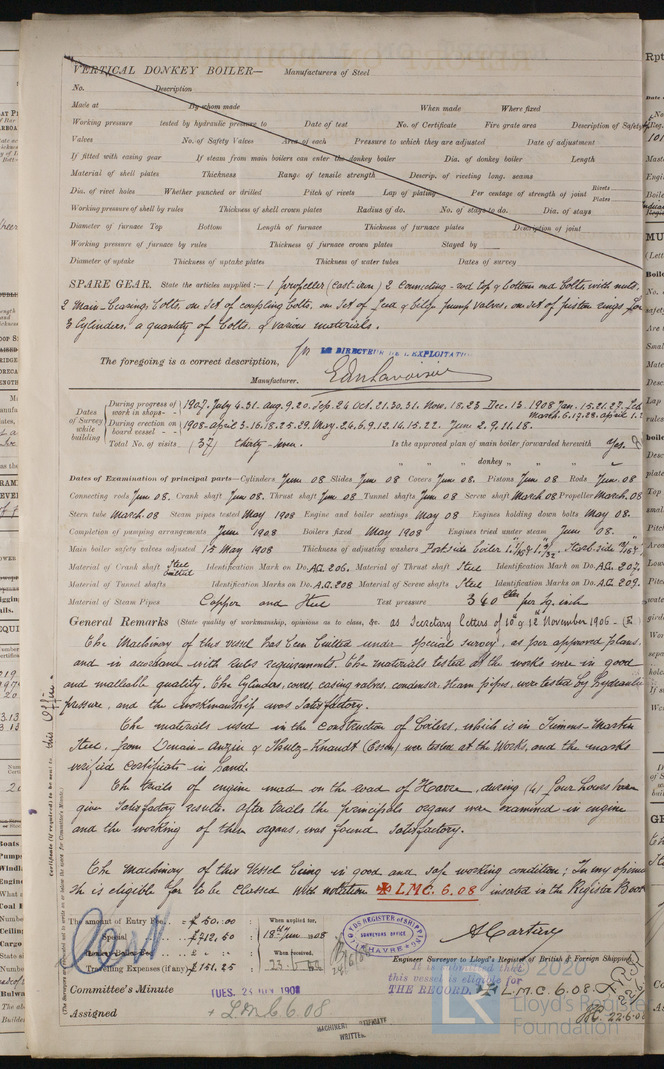 VERTICAL DONKEY BOILER— Manufacturers of Steel
No. Description
Made at By whom made When made Where fixed
Working pressure tested by hydraulic pressure to Date of test No. of Certificate Fire grate area Description of Safety
Valves No. of Safety Valves Area of each Pressure to which they are adjusted Date of adjustment
If fitted with easing gear If steam from main boilers can enter the donkey boiler Dia. of donkey boiler Length
Material of shell plates Thickness Range of tensile strength Descrip. of riveting long. seams
Dia. of rivet holes Whether punched or drilled Pitch of rivets Lap of plating Per centage of strength of joint Rivets
Plates
Working pressure of shell by rules Thickness of shell crown plates Radius of do. No. of stays to do. Dia. of stays
Diameter of furnace Top Bottom Length of furnace Thickness of furnace plates Description of joint
Working pressure of furnace by rules Thickness of furnace crown plates Stayed by
Diameter of uptake Thickness of uptake plates Thickness of water tubes Dates of survey
SPARE GEAR. State the articles supplied:— 1 propeller (cast iron) 2 connecting-rod top & bottom end bolts with nuts.
2 Main-bearing bolts, on set of coupling bolts, on set of feed & bilge pump valves, on set of piston rings for
3 Cylinders, a quantity of bolts, of various materials.
The foregoing is a correct description,
LE DIRECTEUR DE L'EXPLOITATION
Manufacturer.
Dates of Survey while building
During progress of work in shops- - 1907. July 4.31. Aug. 9.20. Sep. 24 Oct. 21.30.31. Nov. 18.23 Dec. 13. 1908 Jan. 15.21.27. Feb
March 6.17.28. April 1.2
During erection on board vessel - - 1908- April 3.16.18.25.29. May. 24.6.9.12.14.15.22. June 2.9.11.18.
Total No. of visits (37) thirty-seven. Is the approved plan of main boiler forwarded herewith Yes.
" " " donkey " " "
Dates of Examination of principal parts—Cylinders June 08 Slides June 08 Covers June 08. Pistons June 08 Rods June 08
Connecting rods June 08. Crank shaft June 08. Thrust shaft June 08 Tunnel shafts June 08 Screw shaft March 08 Propeller March. 08
Stern tube March. 08 Steam pipes tested May 1908 Engine and boiler seatings May 08 Engines holding down bolts May 08.
Completion of pumping arrangements June 1908 Boilers fixed May 1908 Engines tried under steam June 08.
Main boiler safety valves adjusted 15 May 1908 Thickness of adjusting washers Port side boiler Starb. side
Material of Crank shaft Steel Identification Mark on Do. A.G. 206. Material of Thrust shaft Steel Identification Mark on Do. A.G. 207.
Material of Tunnel shafts Identification Marks on Do. A.G. 208 Material of Screw shafts Steel Identification Marks on Do. A.G. 209.
Material of Steam Pipes Copper and Steel Test pressure 340 lbs per sq. inch
General Remarks (State quality of workmanship, opinions as to class, &c. as Secretary letters of 10th & 12th November 1906 - (E)
The Machinery of this vessel has been builted under special survey, as per approved plans,
and in accordance with rules requirements. The materials tested at the works were in good
and malleable quality. The cylinders, covers, casing valves, condenser, steam pipes, were tested by hydraulic
pressure, and the workmanship was satisfactory.
The materials used in the construction of boilers, which is in Siemens-Martin
Steel, from Denain-Anzin & Shultz-Knaudt (Essen) were tested at the Works, and the marks
verified certificate in hand.
The trials of engine made on the road of Havre, during (4) four hours have
given satisfactory results. After trials the principals organs were examined in engine
and the working of these organs, was found satisfactory.
The Machinery of this vessel being in good and safe working condition; In my opinion
she is eligible for to be classed with notation ✠ L.M.C. 6.08 inserted in the Register Book
Certificate (if required) to be sent to this Office.
(The Surveyors are requested not to write on or below the space for Committee's Minute.)
The amount of Entry Fee.. £ 50.00
Special £ 712.50
Donkey Boiler Fee
Travelling Expenses (if any) £ 151.25
When applied for,
18th June 1908
When received,
LLOYDS REGISTER OF SHIPPING
SURVEYORS OFFICE
HAVRE
Engineer Surveyor to Lloyd's Register of British & Foreign Shipping.
It is submitted that
this vessel is eligible for
THE RECORD. ✠ L.M.C. 6.08.
22.6.08
Committee's Minute TUES. 23 JUN 1908
Assigned + LMC 6.08
MACHINERY CERTIFICATE
WRITTEN.
© 2020
Lloyd's Register
Foundation